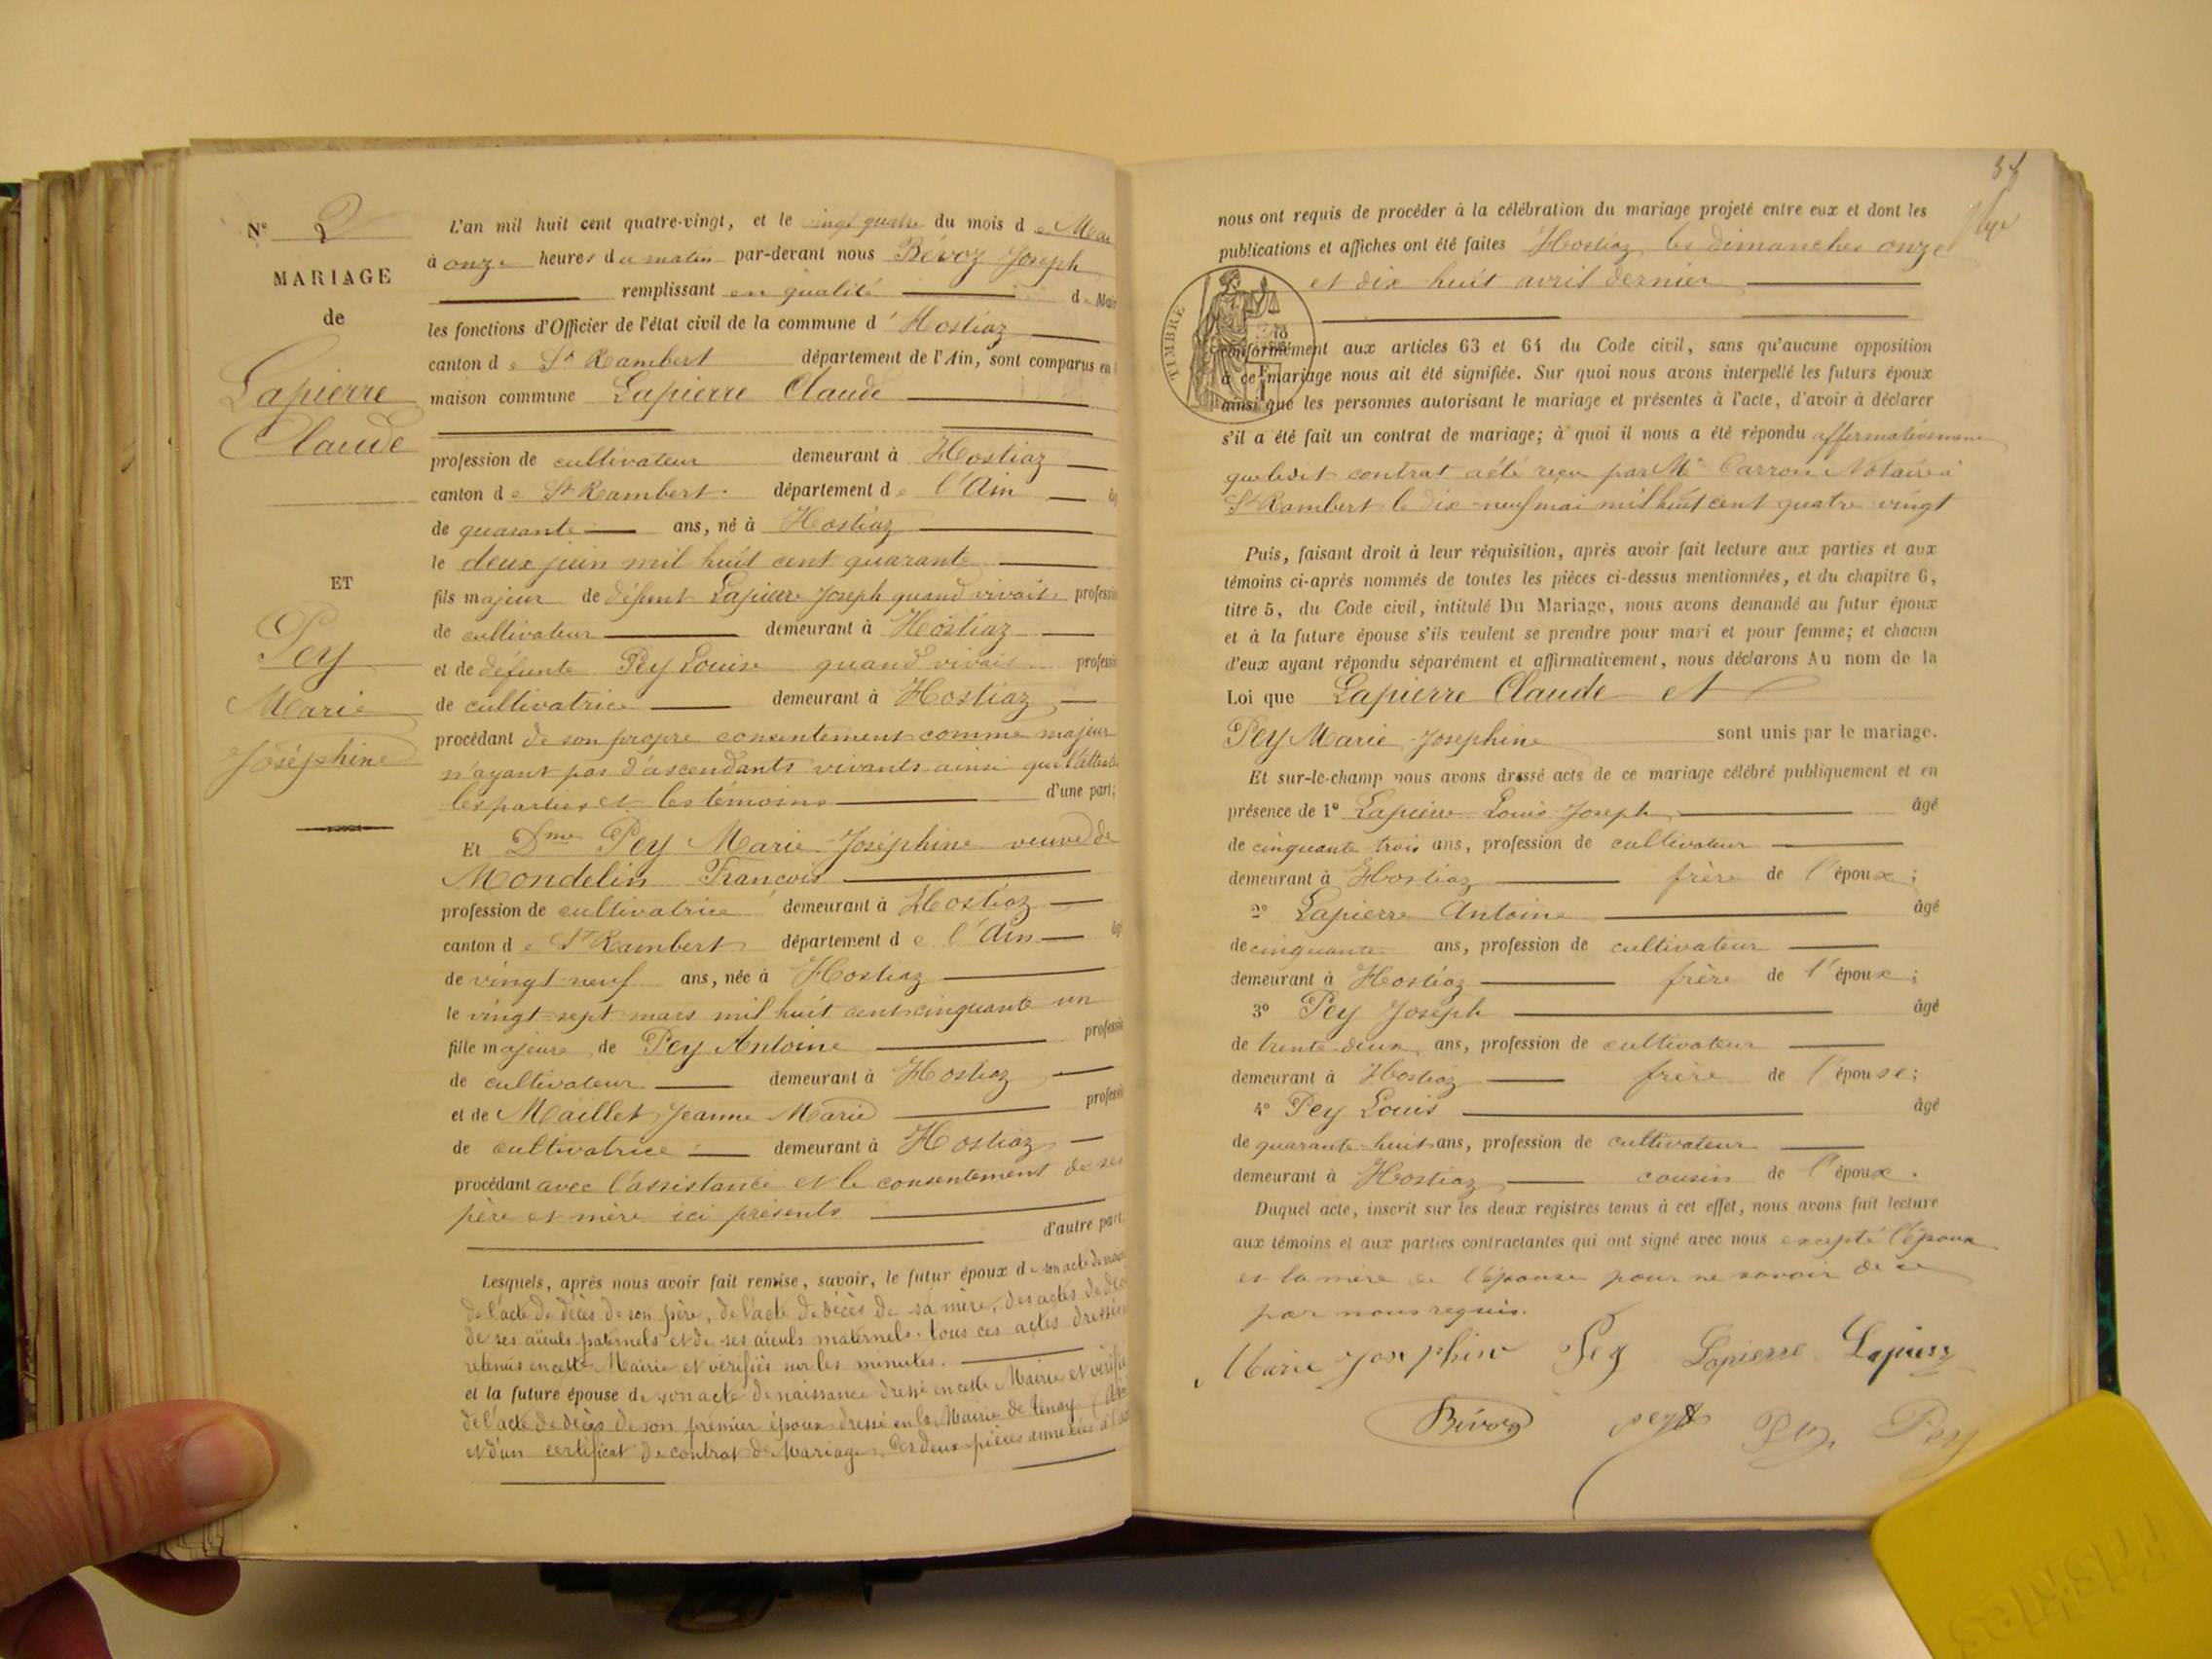 N° 2
MARIAGE
de
Lapierre
Claude
ET
Pey
Marie
Joséphine
L'an mil huit cent quatre-vingt, et le vingt quatre du mois de Mai
à onze heures du matin par-devant nous Bévoz Joseph
remplissant en qualité de Mai
les fonctions d'Officier de l'état civil de la commune d'Hostiaz
canton de St Rambert département de l'Ain, sont comparus en
maison commune Lapierre Claude
profession de cultivateur demeurant à Hostiaz
canton de St Rambert département de l'Ain
de quarante ans, né à Hostiaz
le deux juin mil huit cent quarante
fils majeur de défunt Lapierre Joseph quand vivait professi
de cultivateur demeurant à Hostiaz
et de défunte Pey Louise quand vivait professi
de cultivatrice demeurant à Hostiaz
procédant de son propre consentement comme majeur
n'ayant pas d'ascendants vivants ainsi que l'atteste
les parties et les témoins d'une part;
Et Dme Pey Marie Joséphine veuve de
Mondelin François
profession de cultivatrice demeurant à Hostiaz
canton de St Rambert département de l'Ain
de vingt neuf ans, née à Hostiaz
le vingt-sept mars mil huit cent cinquante un
fille majeure de Pey Antoine professi
de cultivateur demeurant à Hostiaz
et de Maillet Jeanne Marie professi
de cultivatrice demeurant à Hostiaz
procédant avec l'assistance et le consentement de ses
père et mère ici présents
d'autre part,
Lesquels, après nous avoir fait remise, savoir, le futur époux de son acte de nais
de l'acte de décès de son père, de l'acte de décès de sa mère, des actes de déc
de ses aïeuls paternels et de ses aïeuls maternels. tous ces actes dressés
retenus en cette Mairie et vérifiés sur les minutes.
et la future épouse de son acte de naissance dressé en cette Mairie et vérifié
de l'acte de décès de son premier époux dressé en la Mairie de Tenay (Ain
et d'un certificat de contrat de Mariage. Ces deux pièces annexées à
nous ont requis de procéder à la célébration du mariage projeté entre eux et dont les
publications et affiches ont été faites Hostiaz les dimanches onze
et dix huit avril dernier
TIMBRE
conformément aux articles 63 et 64 du Code civil, sans qu'aucune opposition
à ce mariage nous ait été signifiée. Sur quoi nous avons interpellé les futurs époux
ainsi que les personnes autorisant le mariage et présentes à l'acte, d'avoir à déclarer
s'il a été fait un contrat de mariage; à quoi il nous a été répondu affirmativement
que ledit contrat a été reçu par Me Carron Notaire à
St Rambert le dix-neuf mai mil huit cent quatre vingt
Puis, faisant droit à leur réquisition, après avoir fait lecture aux parties et aux
témoins ci-après nommés de toutes les pièces ci-dessus mentionnées, et du chapitre 6,
titre 5, du Code civil, intitulé Du Mariage, nous avons demandé au futur époux
et à la future épouse s'ils veulent se prendre pour mari et pour femme; et chacun
d'eux ayant répondu séparément et affirmativement, nous déclarons Au nom de la
Loi que Lapierre Claude et
Pey Marie Josephine sont unis par le mariage.
Et sur-le-champ nous avons dressé acts de ce mariage célébré publiquement et en
présence de 1° Lapierre Louis Joseph âgé
de cinquante trois ans, profession de cultivateur
demeurant à Hostiaz frère de l'époux;
2° Lapierre Antoine âgé
de cinquante ans, profession de cultivateur
demeurant à Hostiaz frère de l'époux;
3° Pey Joseph âgé
de trente deux ans, profession de cultivateur
demeurant à Hostiaz frère de l'épouse;
4° Pey Louis âgé
de quarante huit ans, profession de cultivateur
demeurant à Hostiaz cousin de l'époux.
Duquel acte, inscrit sur les deux registres tenus à cet effet, nous avons fait lecture
aux témoins et aux parties contractantes qui ont signé avec nous excepté l'époux
et la mère de l'épouse pour ne savoir de ce
par nous requis.
Marie Josephine Pey Lapierre Lapierre
Bévoz Pey Pey